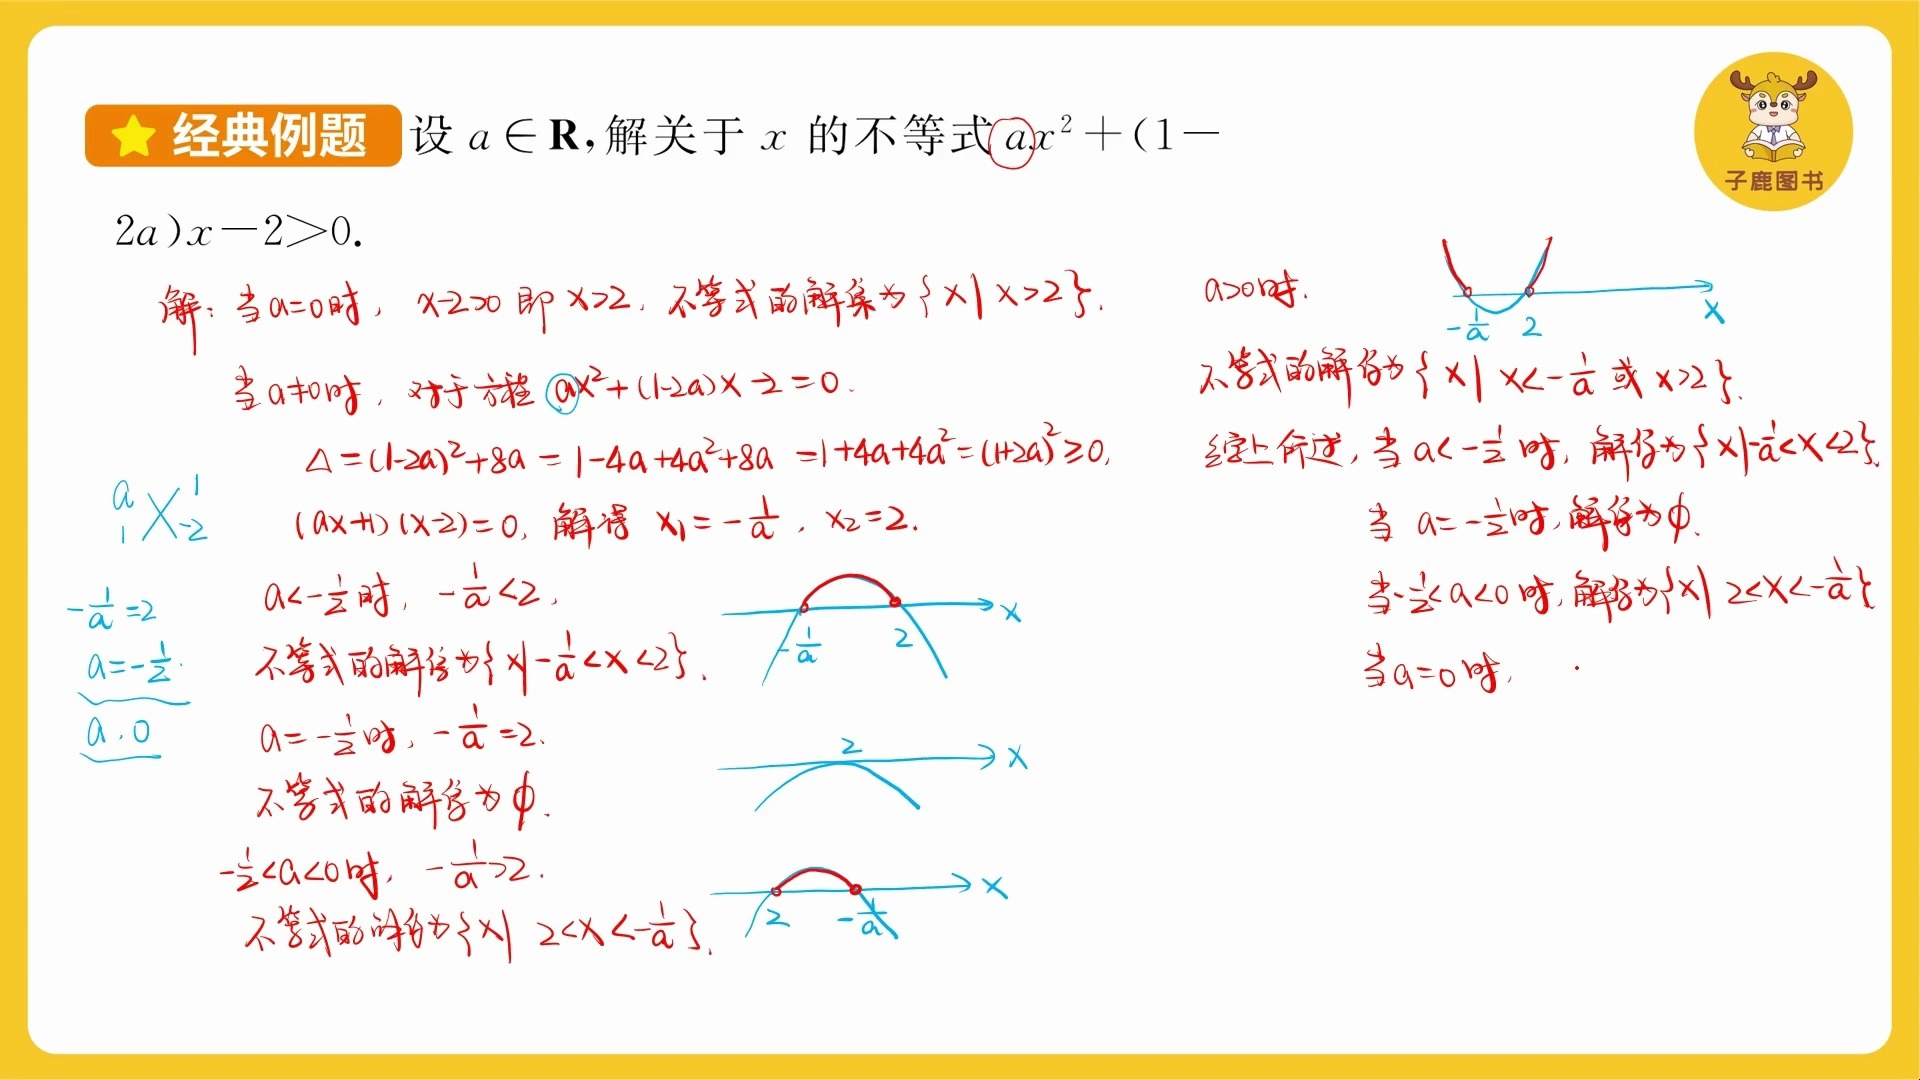 经典例题 设 a∈R,解关于 x 的不等式 ax²+(1-
2a)x-2>0.
子鹿图书
解: 当a=0时, x-2>0 即 x>2. 不等式的解集为{x|x>2}.
当a≠0时, 对于方程 ax²+(1-2a)x-2=0.
△=(1-2a)²+8a=1-4a+4a²+8a=1+4a+4a²=(1+2a)²≥0,
a 1
1 -2
(ax+1)(x-2)=0, 解得 x₁=-1/a, x₂=2.
-1/a=2
a=-1/2.
a. 0
a<-1/2时, -1/a<2,
不等式的解集为{x|-1/a<x<2}.
-1/a 2 x
a=-1/2时, -1/a=2.
不等式的解集为φ.
2 x
-1/2<a<0时, -1/a>2.
不等式的解集为{x| 2<x<-1/a}.
2 -1/a x
a>0时.
-1/a 2 x
不等式的解集为{x| x<-1/a 或 x>2}.
综上所述, 当 a<-1/2 时, 解集为{x|-1/a<x<2}.
当 a=-1/2时, 解集为φ.
当-1/2<a<0时, 解集为{x| 2<x<-1/a}
当a=0时,